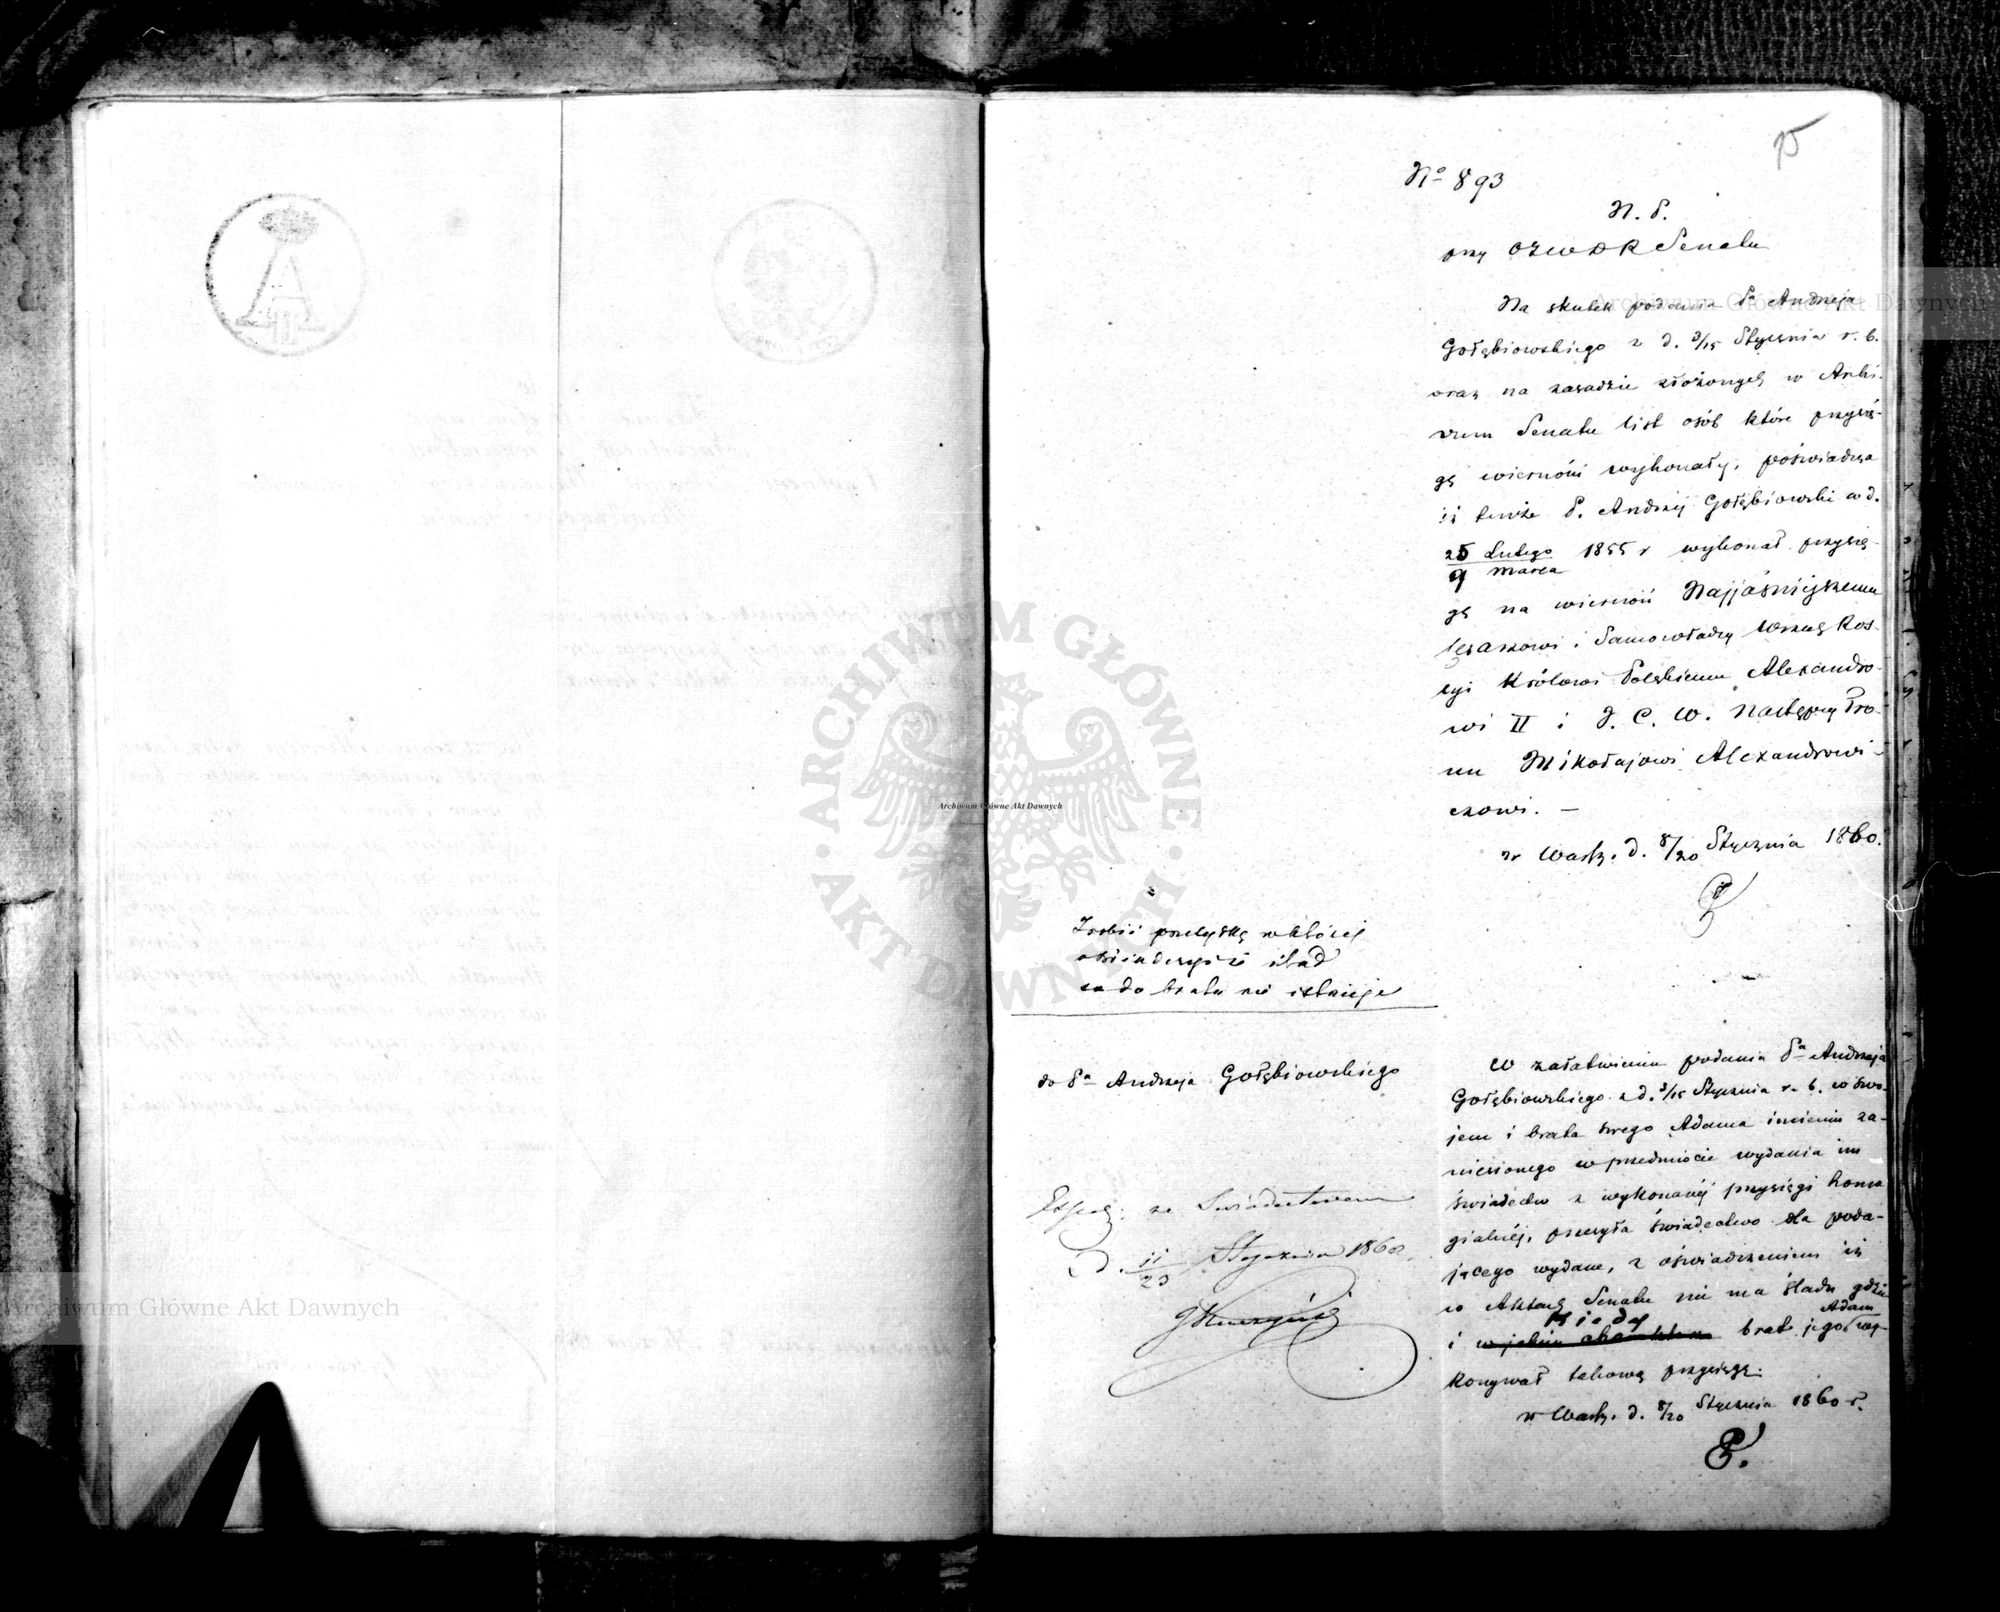 15
No 893
N. P.
przy O Z W D R Senatu
Na skutek podania Pa Andrzeja
Gołębiowskiego z d. 3/15 Stycznia r. b.
oraz na zasadzie złożonych w Archi-
wum Senatu list osób które przysię-
gę wierności wykonały, poświadcza
iż tenże P. Andrzej Gołębiowski w d.
25 Lutego
9 Marca 1855 r wykonał przysię-
gę na wierność Najjaśniejszemu
Cesarzowi i Samowładcy Wszech Ros-
syi Królowi Polskiemu Alexandro-
wi II i J. C. W. Następcy Tro-
nu Mikołajowi Alexandrowi-
czowi. —
w Warsz. d. 8/20 Stycznia 1860.
Zrobić przesyłkę w której
oświadczyć że ślad
co do brata nie istnieje
do Pa Andrzeja Gołębiowskiego
W załatwieniu podania Pa Andrzeja
Gołębiowskiego z d. 3/15 Stycznia r. b. w swo-
jem i brata swego Adama imieniu za-
niesionego w przedmiocie wydania im
świadectw z wykonanéj przysięgi homa
gialnéj, przesyła świadectwo dla poda-
jącego wydane, z oświadczeniem iż
w Aktach Senatu nie ma śladu gdzie
i kiedy brat jego Adam wy-
konywał takową przysięgę.
w Warsz. d. 8/20 Stycznia 1860 r.
Exped: ze Świadectwem
d. 11/23 Stycznia 1860
A II
Archiwum Główne Akt Dawnych
ARCHIWUM GŁÓWNE AKT DAWNYCH
Archiwum Główne Akt Dawnych
Archiwum Główne Akt Dawnych